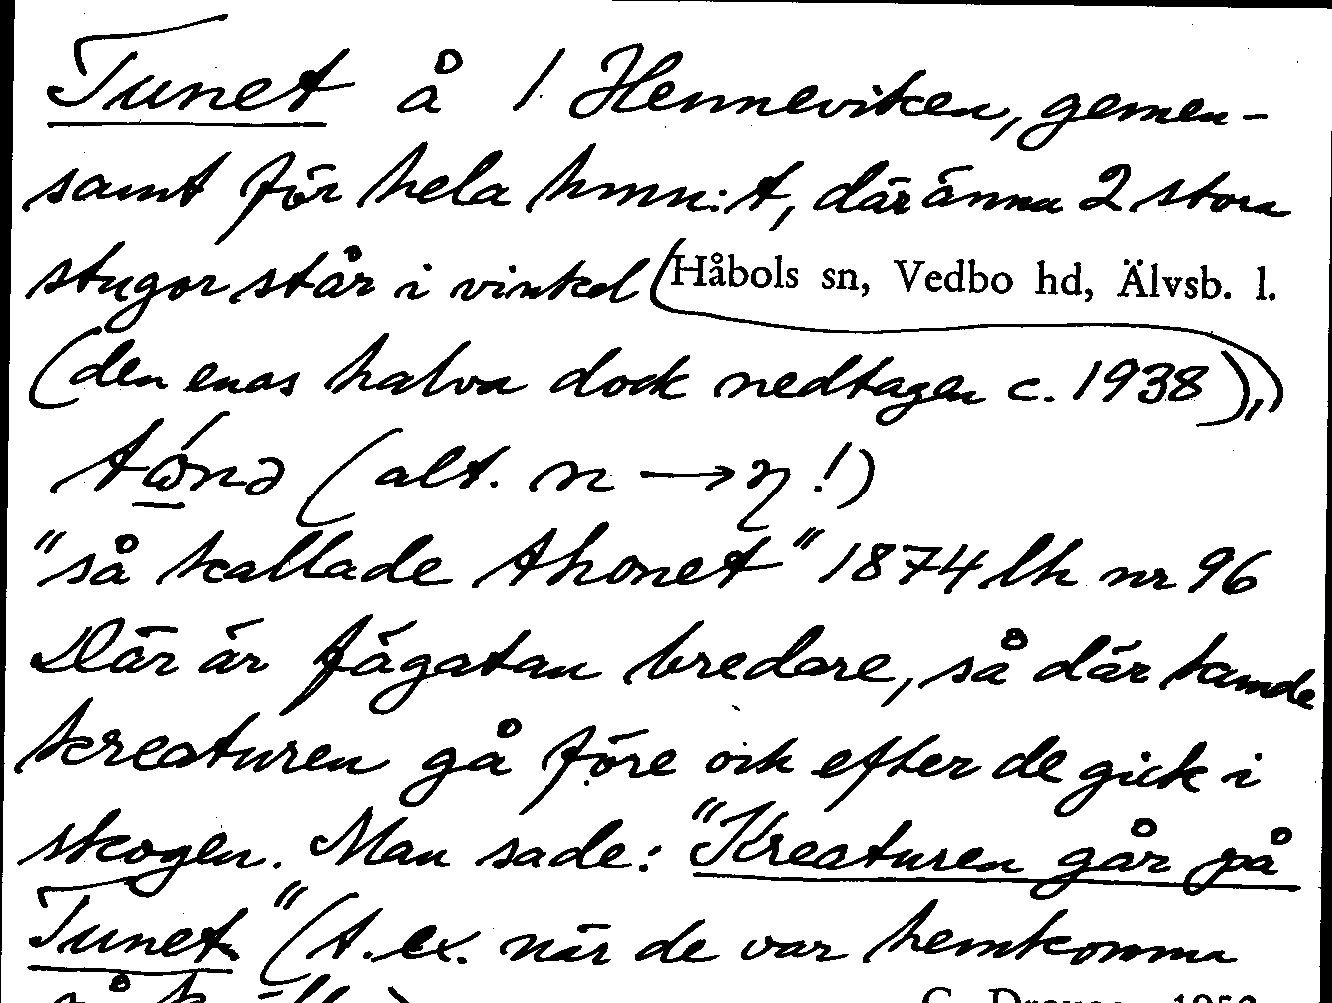 Tunet å 1 Henneviken, gemen-
samt för hela hmn:t, där ännu 2 stora
stugor står i vinkel (Håbols sn, Vedbo hd, Älvsb. l.
(den enas halva dock nedtagen c. 1938),,)
(alt. n → ŋ !)
"så kallade thonet" 1874 lh nr 96
Där är fägatan bredare, så där kunde
kreaturen gå före och efter de gick i
skogen. Man sade: "Kreaturen går på
Tunet" (t.ex. när de var hemkomma